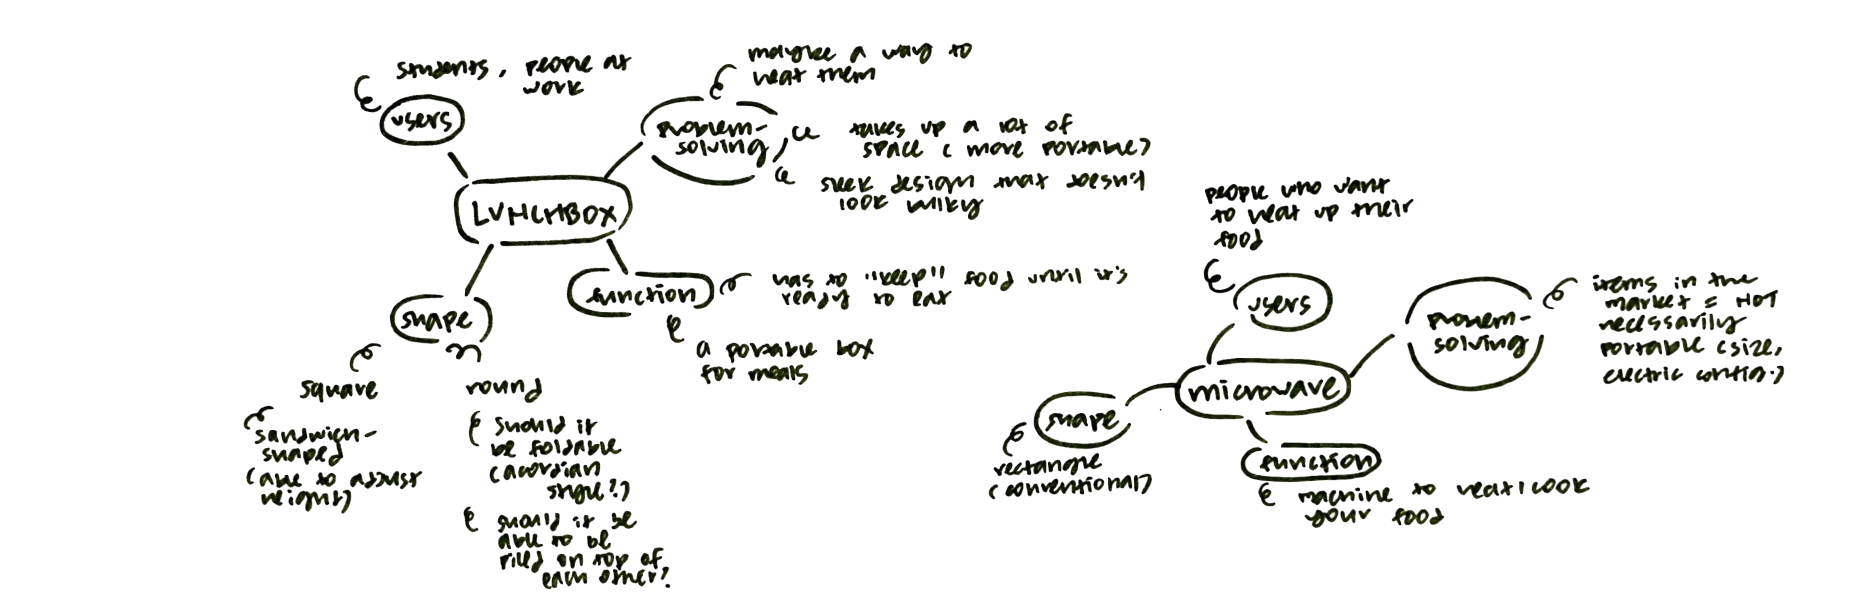 students, people at
work
users
maybe a way to
heat them
problem-
solving
takes up a lot of
space (more portable)
sleek design that doesn't
look bulky
LUNCHBOX
function
has to "keep" food until it's
ready to eat
a portable box
for meals
shape
square
sandwich-
shaped
(able to adjust
height)
round
should it
be foldable
(accordian
style?)
should it be
able to be
piled on top of
each other?
people who want
to heat up their
food
users
problem-
solving
items in the
market = NOT
necessarily
portable (size,
electric config.)
microwave
shape
rectangle
(conventional)
function
machine to heat/cook
your food